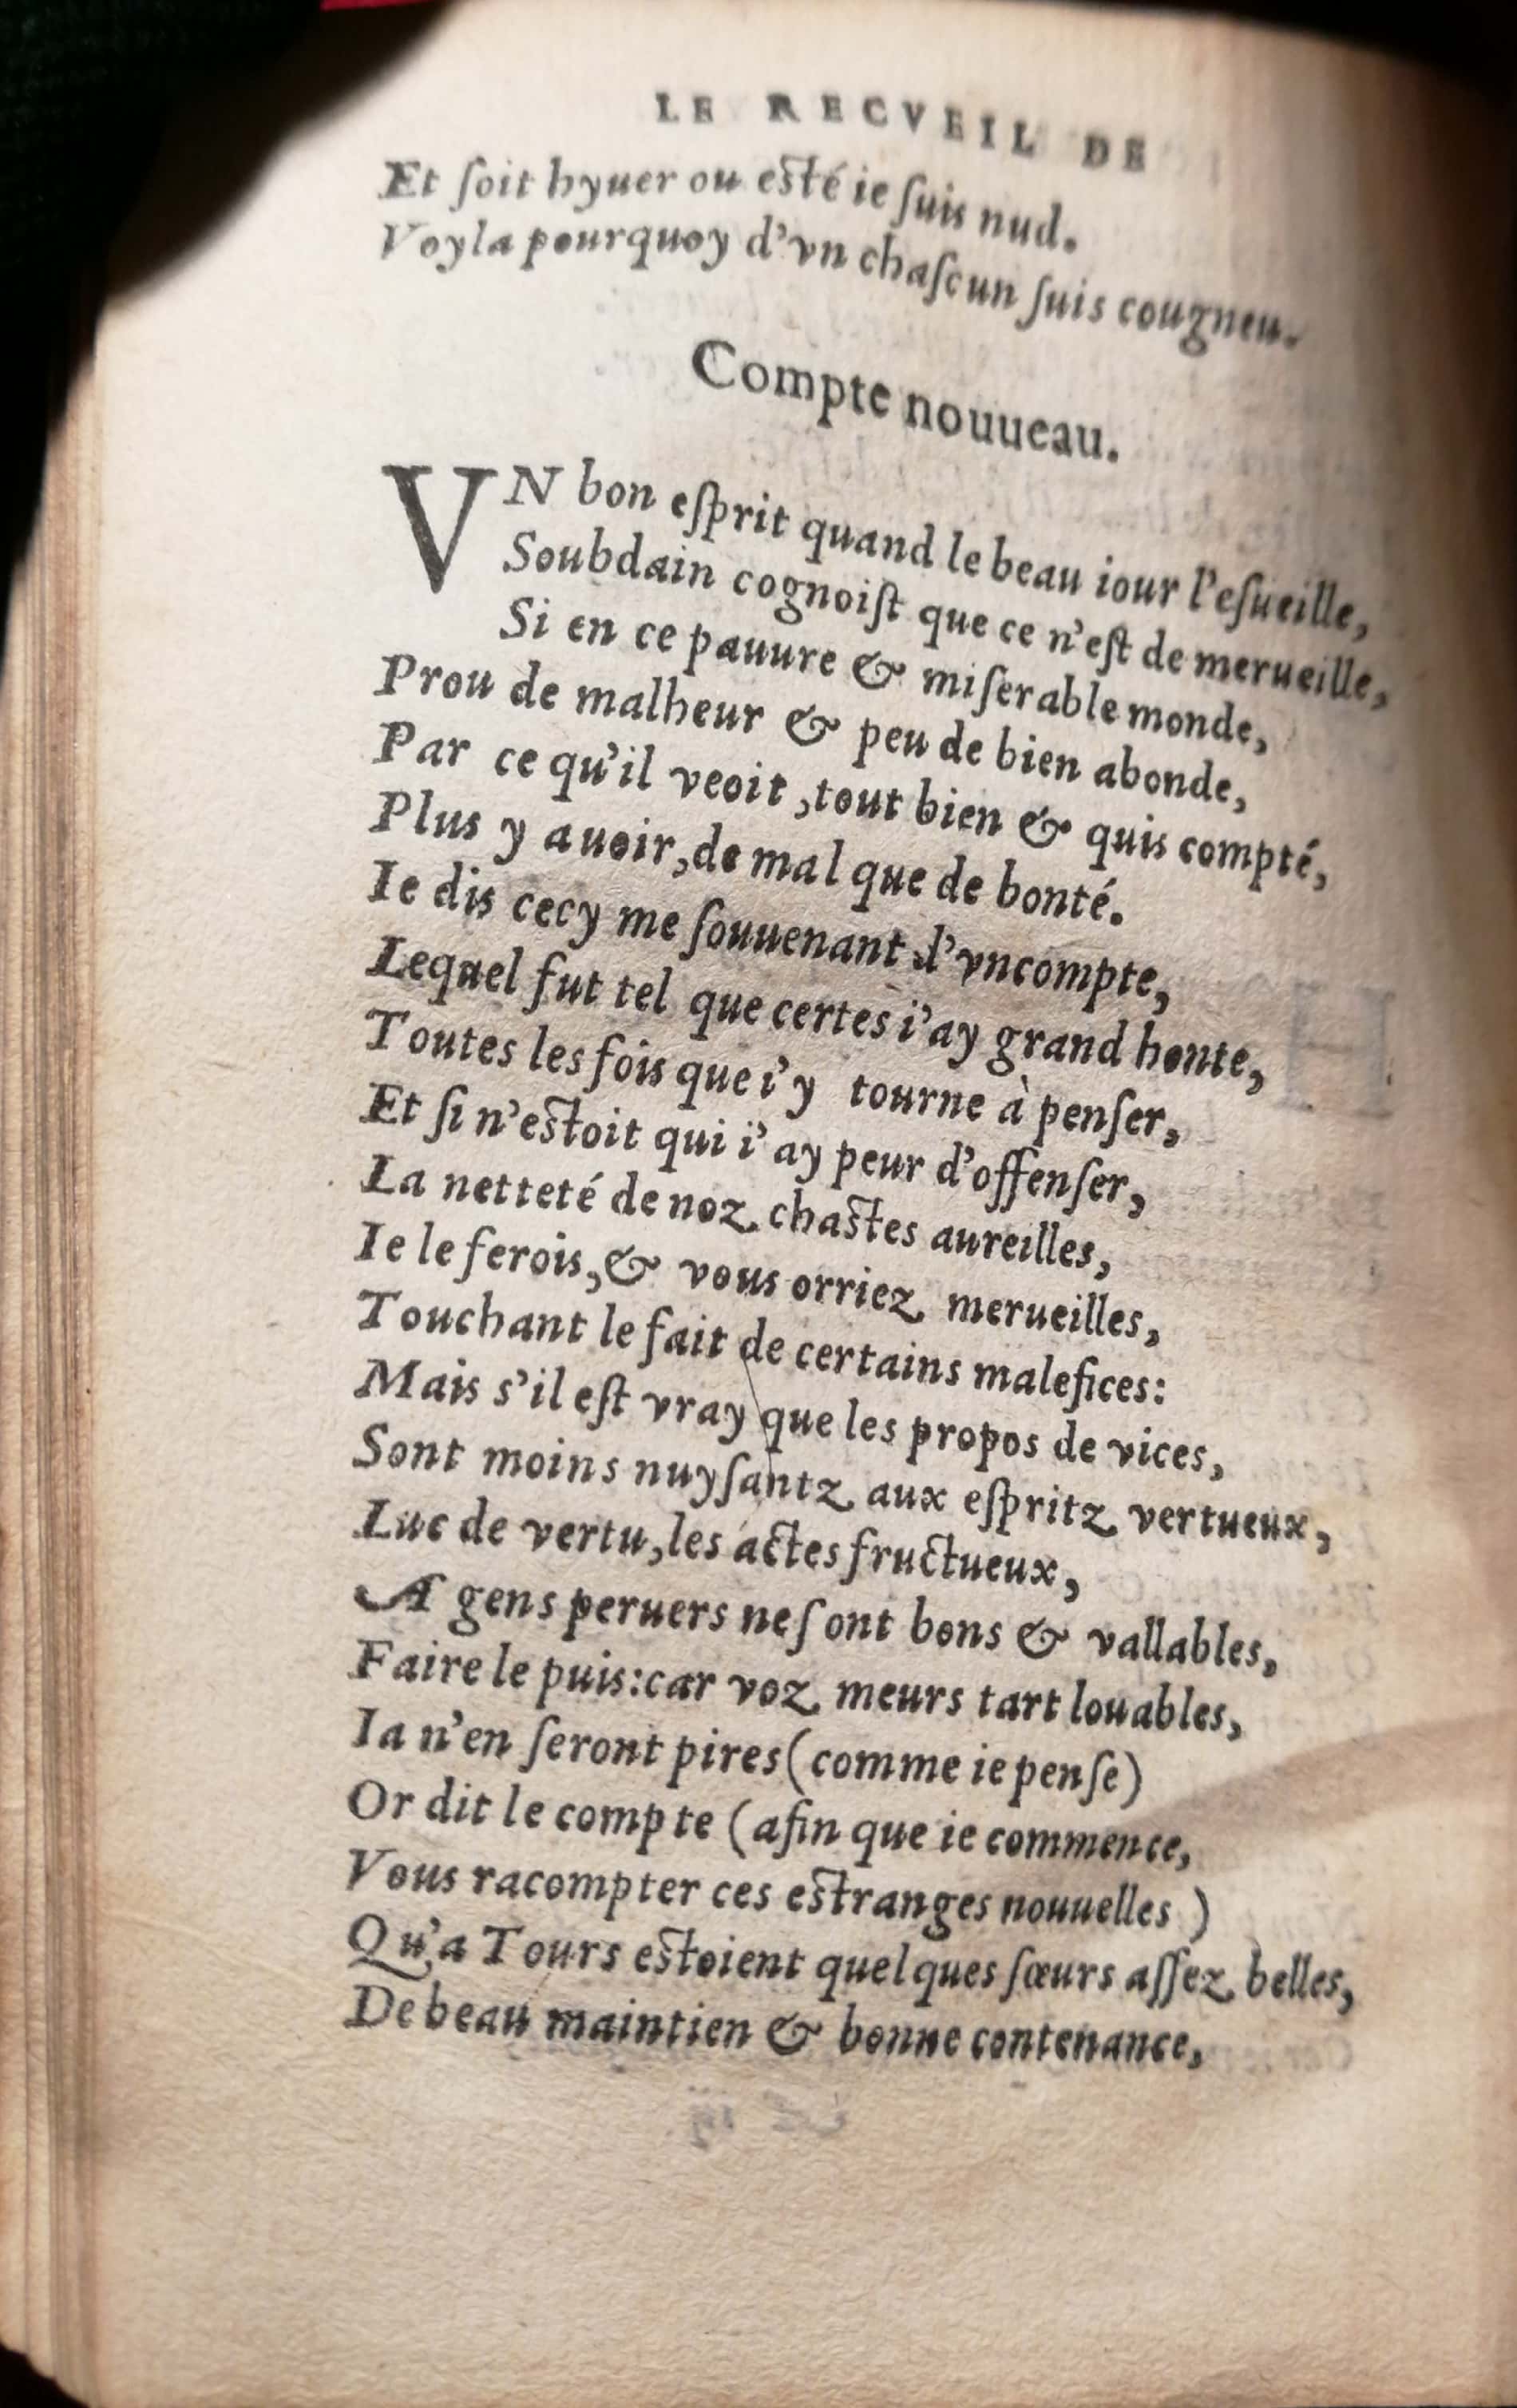 LE RECVEIL DE
Et ſoit hyuer ou eſté ie ſuis nud.
Voyla pourquoy d'vn chaſcun ſuis cougneu.
Compte nouueau.
VN bon eſprit quand le beau iour l'eſueille,
Soubdain cognoiſt que ce n'eſt de merueille,
Si en ce pauure & miſerable monde,
Prou de malheur & peu de bien abonde,
Par ce qu'il veoit, tout bien & quis compté,
Plus y auoir, de mal que de bonté.
Ie dis cecy me ſouuenant d'vncompte,
Lequel fut tel que certes i'ay grand honte,
Toutes les fois que i'y tourne à penſer,
Et ſi n'eſtoit qui i'ay peur d'offenſer,
La netteté de noz chaſtes aureilles,
Ie le ferois, & vous orriez merueilles,
Touchant le fait de certains malefices:
Mais s'il eſt vray que les propos de vices,
Sont moins nuyſantz aux eſpritz vertueux,
Luc de vertu, les actes fructueux,
A gens peruers ne ſont bons & vallables,
Faire le puis: car voz meurs tart louables,
Ia n'en ſeront pires (comme ie penſe)
Or dit le compte (afin que ie commence,
Vous racompter ces eſtranges nouuelles)
Qu'a Tours eſtoient quelques ſœurs aſſez belles,
De beau maintien & bonne contenance,